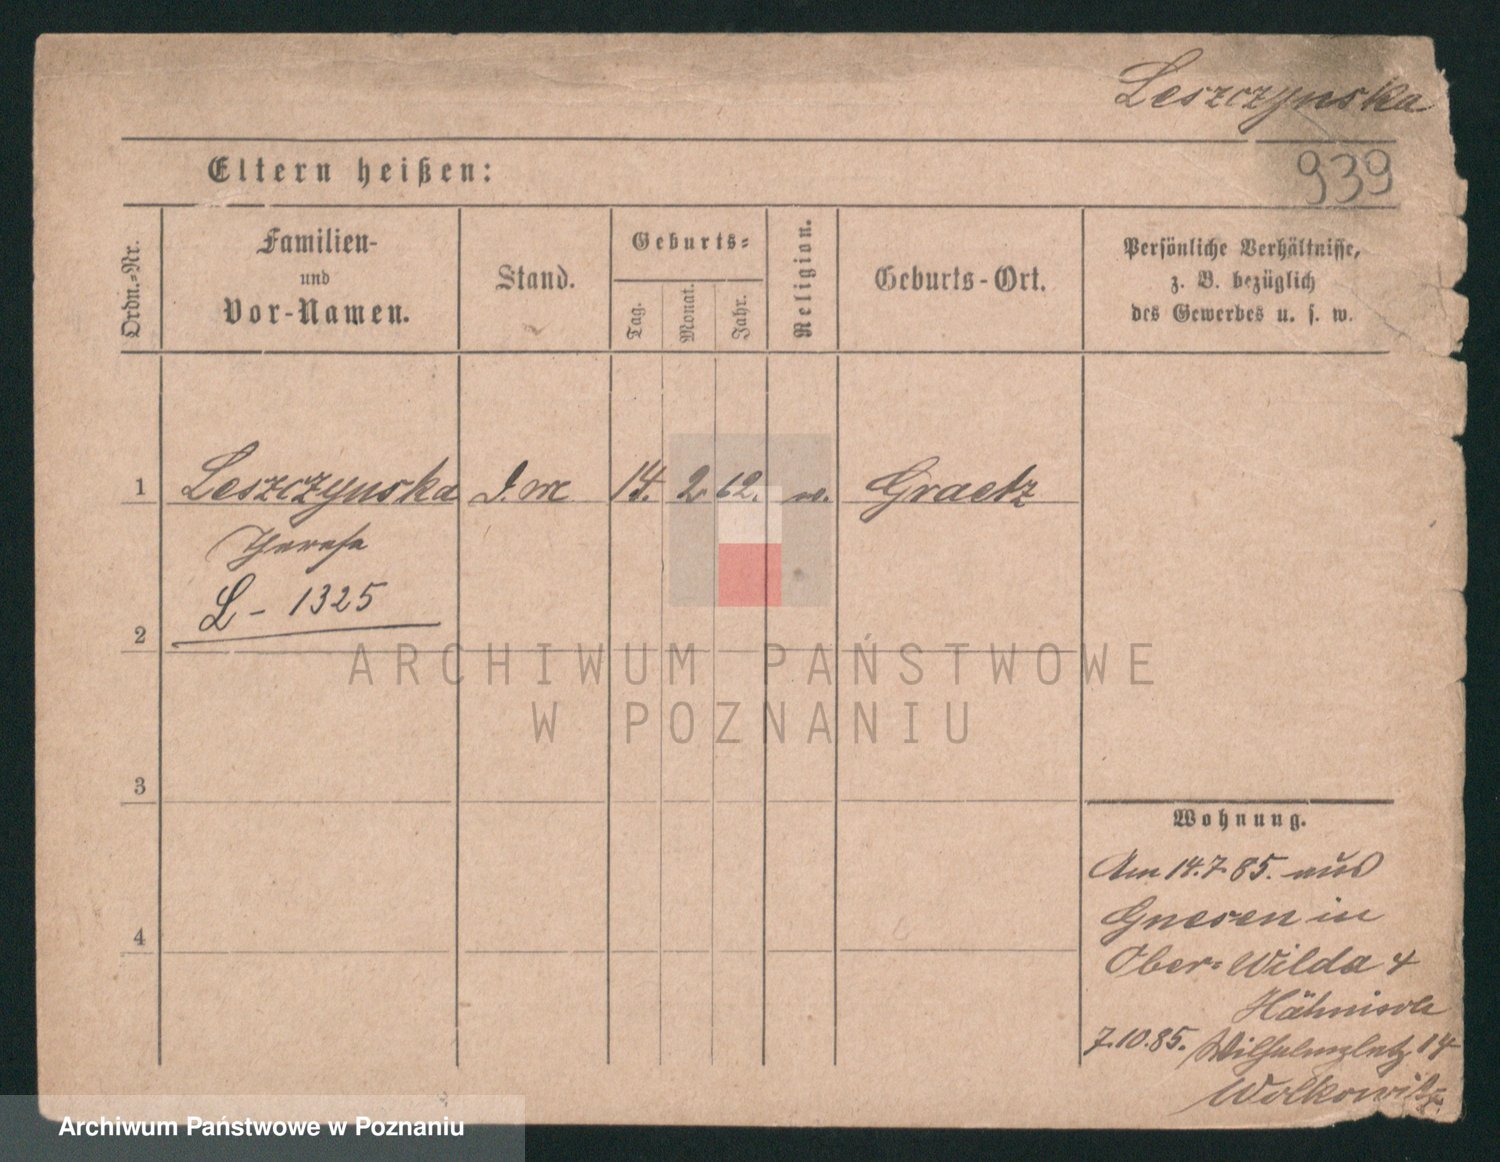 Leszczynska
Eltern heißen:
939
Ordn.-Nr.
Familien-
und
Vor-Namen.
Stand.
Geburts-
Tag.
Monat.
Jahr.
Religion.
Geburts-Ort.
Persönliche Verhältnisse,
z. B. bezüglich
des Gewerbes u. s. w.
1 Leszczynska 14. 2 62. Graetz
Therese
L - 1325
2
ARCHIWUM PAŃSTWOWE
W POZNANIU
3
Wohnung.
Am 14.7.85. aus
Gnesen in
4
Ober-Wilda 4
Hähnisch
7.10.85. Wilhelmplatz 14
Wolkowitz
Archiwum Państwowe w Poznaniu